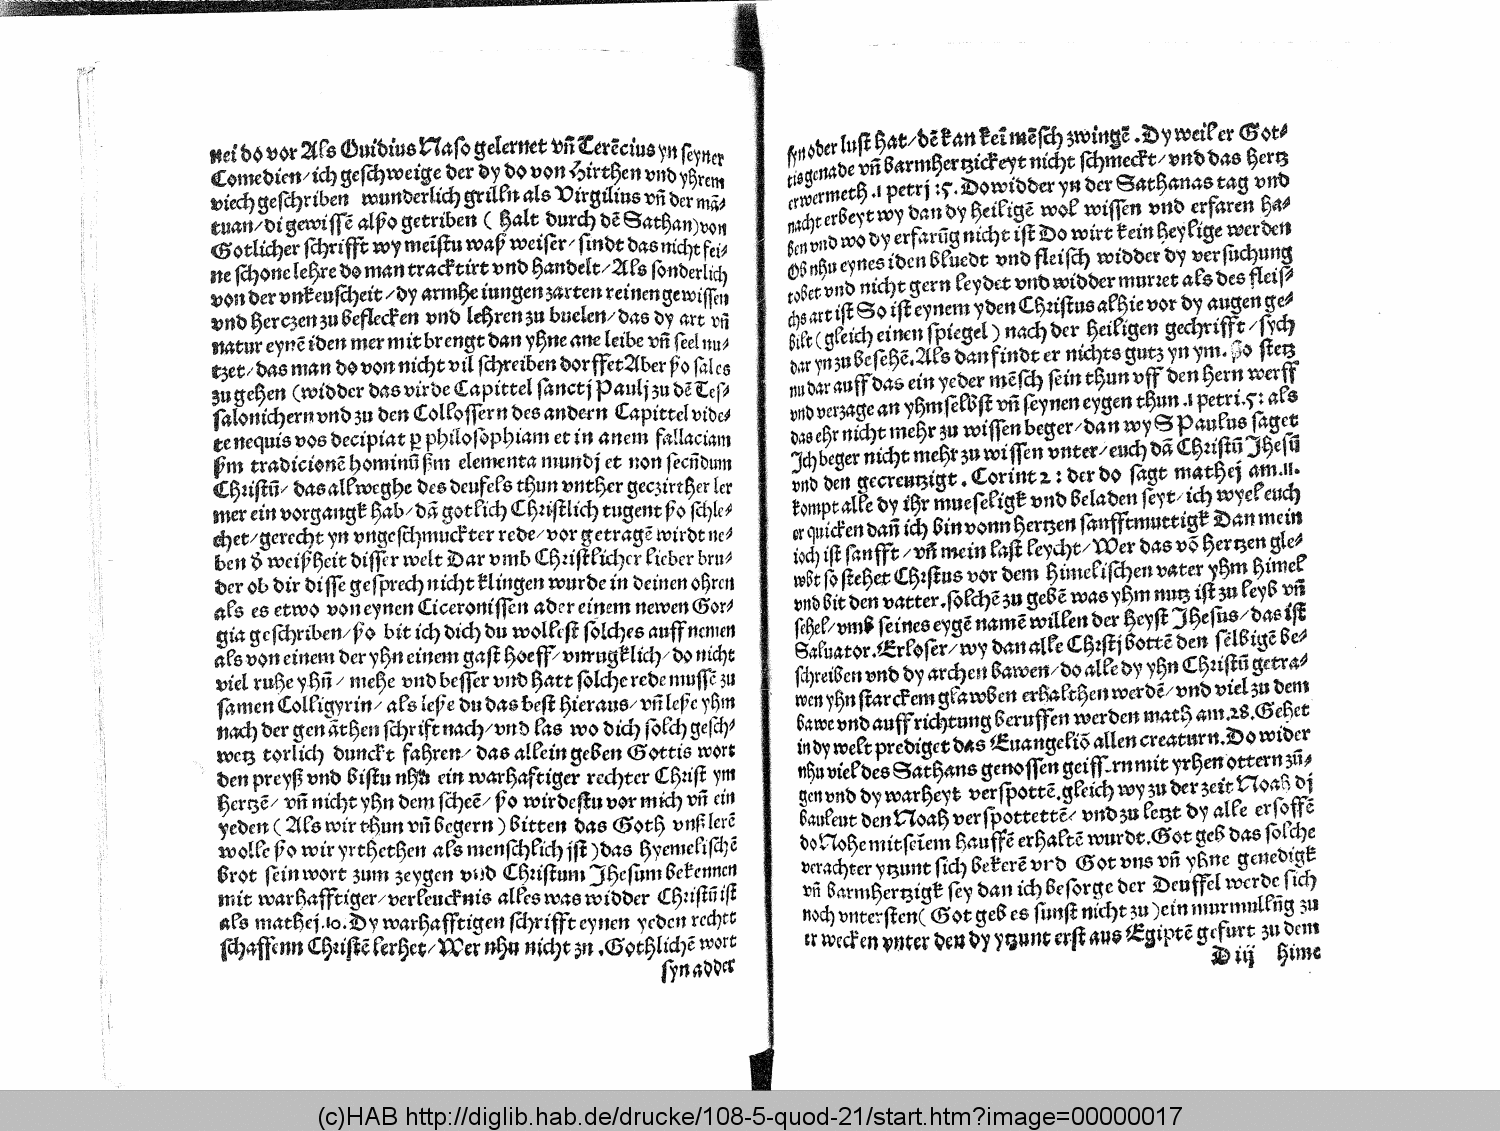 nei do vor Als Ouidius Naso gelernet vñ Terēcius yn seyner
Comedien/ ich geschweige der dy do von Hirthen vnd yhrem
viech geschriben wunderlich grilln als Virgilius vñ der mā⸗
tuan/ di gewissē alßo getriben ( halt durch dē Sathan) von
Gotlicher schrifft wy meistu waß weiser/ sindt das nicht fei⸗
ne schone lehre do man tracktirt vnd handelt/ Als sonderlich
von der vnkeuscheit/ dy armhe iungen zarten reinen gewissen
vnd herczen zu beflecken vnd lehren zu buelen/ das dy art vñ
natur eynē iden mer mit brengt dan yhne ane leibe vñ seel nu⸗
tzet/ das man do von nicht vil schreiben dorffet Aber ßo sal es
zu gehen (widder das virde Capittel sanctj Paulj zu dē Tes⸗
salonichern vnd zu den Collossern des andern Capittel vide⸗
te nequis vos decipiat ꝑ philosophiam et in anem fallaciam
ßm tradicionē hominū ßm elementa mundj et non secūdum
Christū/ das allweghe des deufels thun vnther geczirther ler
mer ein vorgangk hab/ dā gotlich Christlich tugent ßo schle⸗
chet/ gerecht yn vngeschmuckter rede/ vor getragē wirdt ne⸗
ben d̄ weißheit disser welt Dar vmb Christlicher lieber bru⸗
der ob dir disse gesprech nicht klingen wurde in deinen ohren
als es etwo von eynen Ciceronissen ader einem newen Gor⸗
gia geschriben/ ßo bit ich dich du wollest solches auff nemen
als von einem der yhn einem gast hoeff/ vnrugklich/ do nicht
viel ruhe yhñ/ mehe vnd besser vnd hatt solche rede mussē zu
samen Colligyrin/ als leße du das best hieraus/ vñ leße yhm
nach der gen āthen schrift nach/ vnd las wo dich solch gesch⸗
wetz torlich dunckt fahren/ das allein geben Gottis wort
den preyß vnd bistu nhu ein warhaftiger rechter Christ ym
hertzē/ vñ nicht yhn dem scheē/ ßo wirdestu vor mich vñ ein
yeden ( Als wir thun vñ begern ) bitten das Goth vnß lerē
wolle ßo wir yrthethen als menschlich jst ) das hyemelischē
brot sein wort zum zeygen vnd Christum Jhesum bekennen
mit warhafftiger/ verleucknis alles was widder Christū ist
als mathej .10. Dy warhafftigen schrifft eynen yeden rechtt
schaffenn Christē lerhet/ Wer nhu nicht zu . Gothlichē wort
syn adder
syn oder lust hat/ dē kan kei mēsch zwingē . Dy weil er Got⸗
tis genade vñ barmhertzickeyt nicht schmeckt/ vnd das hertz
erwermeth .1 petrj :5. Do widder yn der Sathanas tag vnd
nacht erbeyt wy dan dy heiligē wol wissen vnd erfaren ha⸗
ben vnd wo dy erfarūg nicht ist Do wirt kein heylige werden
Ob nhu eynes iden bluedt vnd fleisch widder dy versuchung
tobet vnd nicht gern leydet vnd widder murret als des fleis⸗
chs art ist So ist eynem yden Christus alhie vor dy augen ge⸗
bilt ( gleich einen spiegel ) nach der heiligen gechrifft / sych
dar yn zu besehē. Als dan findt er nichts gutz yn ym. ßo stetz
nu dar auff das ein yeder mēsch sein thun vff den hern werff
vnd verzage an yhm selbst vñ seynen eygen thun .1 petri. 5: als
das ehr nicht mehr zu wissen beger/ dan wy S Paulus saget
Ich beger nicht mehr zu wissen vnter/ euch dā Christū Jhesū
vnd den gecreutzigt . Corint 2 : der do sagt mathej am .11.
kompt alle dy ihr mueseligk vnd beladen seyt/ ich wyel euch
er quicken dañ ich bin vonn hertzen sanfftmuttigk Dan mein
ioch ist sanfft / vñ mein last leycht/ Wer das vō hertzen gle⸗
wbt so stehet Christus vor dem himelischen vater yhm himel
vnd bit den vatter. solchē zu gebē was yhm nutz ist zu leyb vñ
sehel/ vmb seines eygē namē willen der heyst Jhesus/ das ist
Saluator. Erloser/ wy dan alle Christj bottē den selbigē be⸗
schreiben vnd dy archen bawen/ do alle dy yhn Christū getra⸗
wen yhn starckem glawben erhalthen werdē/ vnd viel zu dem
bawe vnd auff richtung beruffen werden math am. 28. Gehet
in dy welt prediget das Euangeliō allen creaturn. Do wider
nhu viel des Sathans genossen geiffern mit yrhen ottern zū⸗
gen vnd dy warheyt verspottē. gleich wy zu der zeit Noah dj
bauleut den Noah verspottettē/ vnd zu letzt dy alle ersoffē
do Nohe mit seiem hauffē erhaltē wurdt. Got geb das solche
verachter ytzunt sich bekerē vrd Got vns vñ yhne genedigk
vñ barmhertzigk sey dan ich besorge der Deuffel werde sich
noch vntersten ( Got geb es sunst nicht zu ) ein murmullūg zu
er wecken vnter den dy ytzunt erst aus Egiptē gefurt zu dem
D iij hime
(c)HAB http://diglib.hab.de/drucke/108-5-quod-21/start.htm?image=00000017